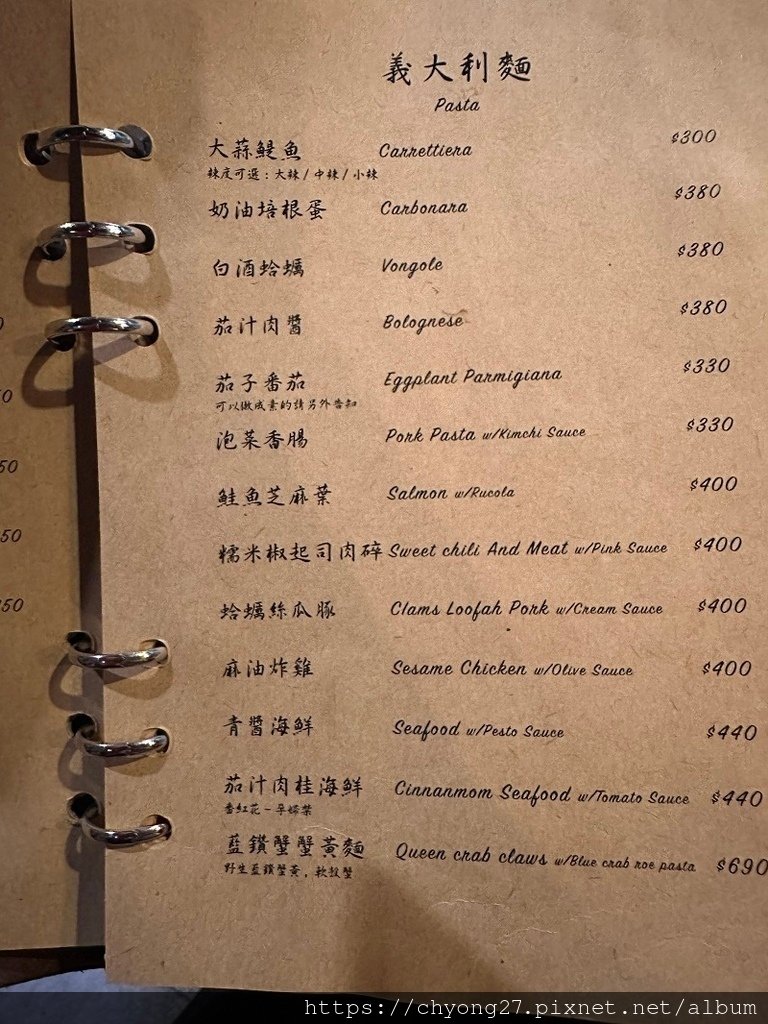 義大利麵
Pasta
大蒜鯷魚 Carrettiera $300
辣度可選：大辣/中辣/小辣
奶油培根蛋 Carbonara $380
白酒蛤蠣 Vongole $380
茄汁肉醬 Bolognese $380
茄子番茄 Eggplant Parmigiana $330
可以做成素的請另外告知
泡菜香腸 Pork Pasta w/Kimchi Sauce $330
鮭魚芝麻葉 Salmon w/Rucola $400
糯米椒起司肉碎 Sweet chili And Meat w/Pink Sauce $400
蛤蠣絲瓜豚 Clams Loofah Pork w/Cream Sauce $400
麻油炸雞 Sesame Chicken w/Olive Sauce $400
青醬海鮮 Seafood w/Pesto Sauce $440
茄汁肉桂海鮮 Cinnanmom Seafood w/Tomato Sauce $440
番紅花～孕婦禁
藍鑽蟹蟹黃麵 Queen crab claws w/Blue crab roe pasta $690
野生藍鑽蟹黃，軟殼蟹
50
50
350
https://chyong27.pixnet.net/album